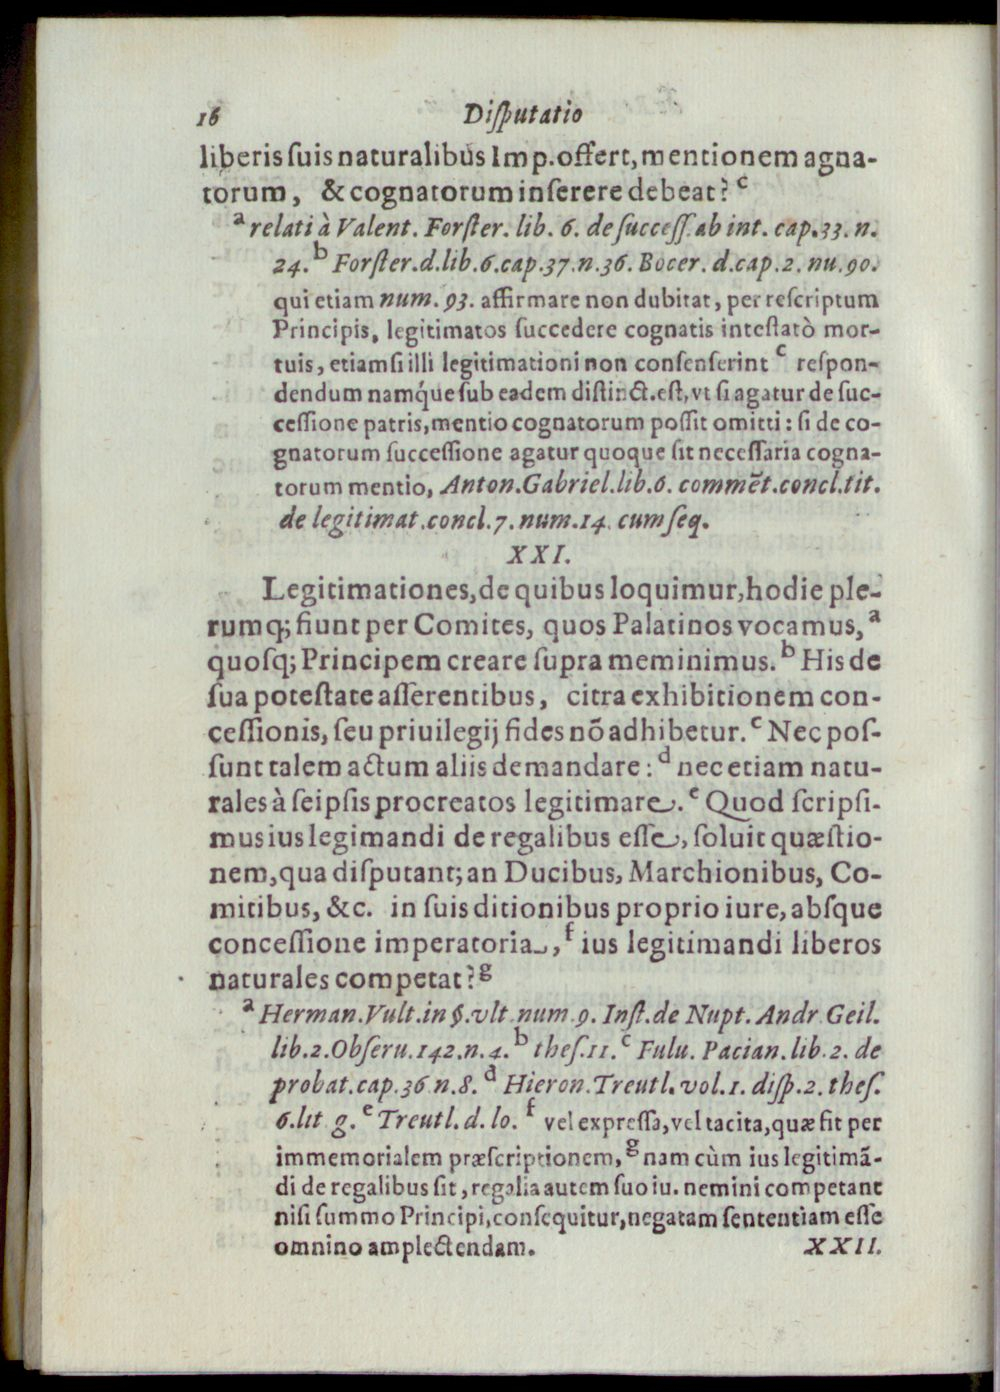 16 Diſputatio
liberis ſuis naturalibus Imp. offert, mentionem agna-
torum, & cognatorum inſerere debeat? c
a relati à Valent. Forſter. lib. 6. de ſucceſſ. ab int. cap. 33. n.
24. b Forſter. d. lib. 6. cap. 37. n. 36. Bocer. d. cap. 2. nu. 90.
qui etiam num. 93. affirmare non dubitat, per reſcriptum
Principis, legitimatos ſuccedere cognatis inteſtatò mor-
tuis, etiamſi illi legitimationi non conſenſerint c reſpon-
dendum namq́ue ſub eadem diſtinct. eſt, vt ſi agatur de ſuc-
ceſſione patris, mentio cognatorum poſſit omitti: ſi de co-
gnatorum ſucceſſione agatur quoque ſit neceſſaria cogna-
torum mentio, Anton. Gabriel. lib. 6. commēt. concl. tit.
de legitimat. concl. 7. num. 14. cum ſeq.
XXI.
Legitimationes, de quibus loquimur, hodie ple-
rumq; fiunt per Comites, quos Palatinos vocamus, a
quoſq; Principem creare ſupra meminimus. b His de
ſua poteſtate aſſerentibus, citra exhibitionem con-
ceſſionis, ſeu priuilegij fides nō adhibetur. c Nec poſ-
ſunt talem actum aliis demandare: d nec etiam natu-
rales à ſeipſis procreatos legitimare. e Quod ſcripſi-
mus ius legimandi de regalibus eſſe, ſoluit quæſtio-
nem, qua diſputant; an Ducibus, Marchionibus, Co-
mitibus, &c. in ſuis ditionibus proprio iure, abſque
conceſſione imperatoria, f ius legitimandi liberos
naturales competat? g
a Herman. Vult. in §. vlt num. 9. Inſt. de Nupt. Andr. Geil.
lib. 2. Obſeru. 142. n. 4. b theſ. 11. c Fulu. Pacian. lib. 2. de
probat. cap. 36 n. 8. d Hieron. Treutl. vol. 1. diſp. 2. theſ.
6. lit g. e Treutl. d. lo. f vel expreſſa, vel tacita, quæ fit per
immemorialem præſcriptionem, g nam cùm ius legitimā-
di de regalibus ſit, regalia autem ſuo iu. nemini competant
niſi ſummo Principi, conſequitur, negatam ſententiam eſſe
omnino amplectendam. XXII.